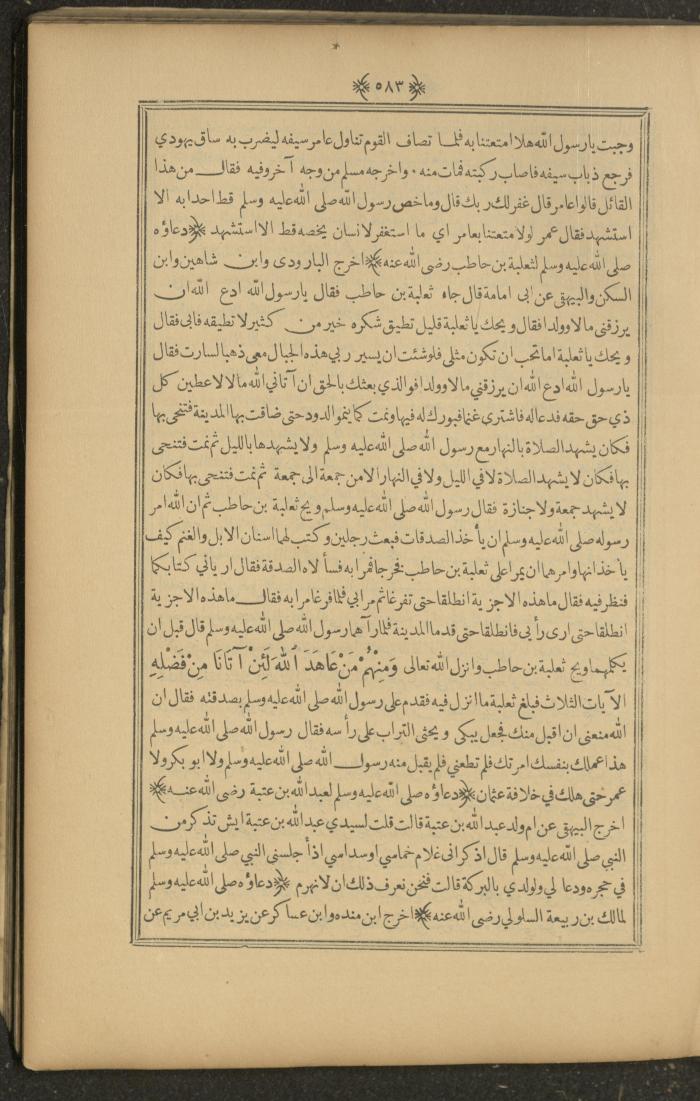 ٥٨٣
وجبت يارسول الله هلا امتعتنا به فلما تصاف القوم تناول عامر سيفه ليضرب به ساق يهودي
فرجع ذباب سيفه فاصاب ركبته فمات منه ٠ واخرجه مسلم من وجه آخر وفيه فقال من هذا
القائل قالوا عامر قال غفر لك ربك قال وما خص رسول الله صلى الله عليه وسلم قط احدا به الا
استشهد فقال عمر لولا متعتنا بعامر اي ما استغفر لانسان يخصه قط الا استشهد ﴿دعاؤه
صلى الله عليه وسلم لثعلبة بن حاطب رضى الله عنه﴾ اخرج البارودى وابن شاهين وابن
السكن والبيهقي عن ابى امامة قال جاء ثعلبة بن حاطب فقال يارسول الله ادع الله ان
يرزقنى مالا وولدا فقال ويحك يا ثعلبة قليل تطيق شكره خير من كثير لا تطيقه فابى فقال
ويحك يا ثعلبة اما تحب ان تكون مثلى فلو شئت ان يسير ربي هذه الجبال معى ذهبا لسارت فقال
يارسول الله ادع الله ان يرزقني مالا وولدا فوالذي بعثك بالحق ان آتاني الله مالا لاعطين كل
ذي حق حقه فدعا له فاشترى غنما فبورك له فيها ونمت كما ينمو الدود حتى ضاقت بها المدينة فتنحى بها
فكان يشهد الصلاة بالنهار مع رسول الله صلى الله عليه وسلم ولا يشهدها بالليل ثم نمت فتنحى
بها فكان لا يشهد الصلاة لا في الليل ولا في النهار الا من جمعة الى جمعة ثم نمت فتنحى بها فكان
لا يشهد جمعة ولا جنازة فقال رسول الله صلى الله عليه وسلم ويح ثعلبة بن حاطب ثم ان الله امر
رسوله صلى الله عليه وسلم ان يأخذ الصدقات فبعث رجلين وكتب لهما اسنان الابل والغنم كيف
يأخذانها وامرهما ان يمرا على ثعلبة بن حاطب فخرجا فمرا به فسألاه الصدقة فقال ارياني كتابكما
فنظر فيه فقال ما هذه الا جزية انطلقا حتى تفرغا ثم مرا بي فلما فرغا مرا به فقال ما هذه الا جزية
انطلقا حتى ارى رأيى فانطلقا حتى قدما المدينة فلما رآهما رسول الله صلى الله عليه وسلم قال قبل ان
يكلمهما ويح ثعلبة بن حاطب وانزل الله تعالى وَمِنْهُمْ مَنْ عَاهَدَ ٱللهَ لَئِنْ آتَانَا مِنْ فَضْلِهِ
الآيات الثلاث فبلغ ثعلبة ما انزل فيه فقدم على رسول الله صلى الله عليه وسلم بصدقته فقال ان
الله منعنى ان اقبل منك فجعل يبكى ويحثى التراب على رأسه فقال رسول الله صلى الله عليه وسلم
هذا عملك بنفسك امرتك فلم تطعني فلم يقبل منه رسول الله صلى الله عليه وسلم ولا ابو بكر ولا
عمر حتى هلك في خلافة عثمان ﴿دعاؤه صلى الله عليه وسلم لعبد الله بن عتبة رضى الله عنه﴾
اخرج البيهقي عن ام ولد عبد الله بن عتبة قالت قلت لسيدي عبد الله بن عتبة ايش تذكر من
النبي صلى الله عليه وسلم قال اذكر انى غلام خماسي او سداسي اذ أجلسنى النبي صلى الله عليه وسلم
في حجره ودعا لي ولولدي بالبركة قالت فنحن نعرف ذلك ان لا نهرم ﴿دعاؤه صلى الله عليه وسلم
لمالك بن ربيعة السلولي رضى الله عنه﴾ اخرج ابن منده وابن عساكر عن يزيد بن ابي مريم عن